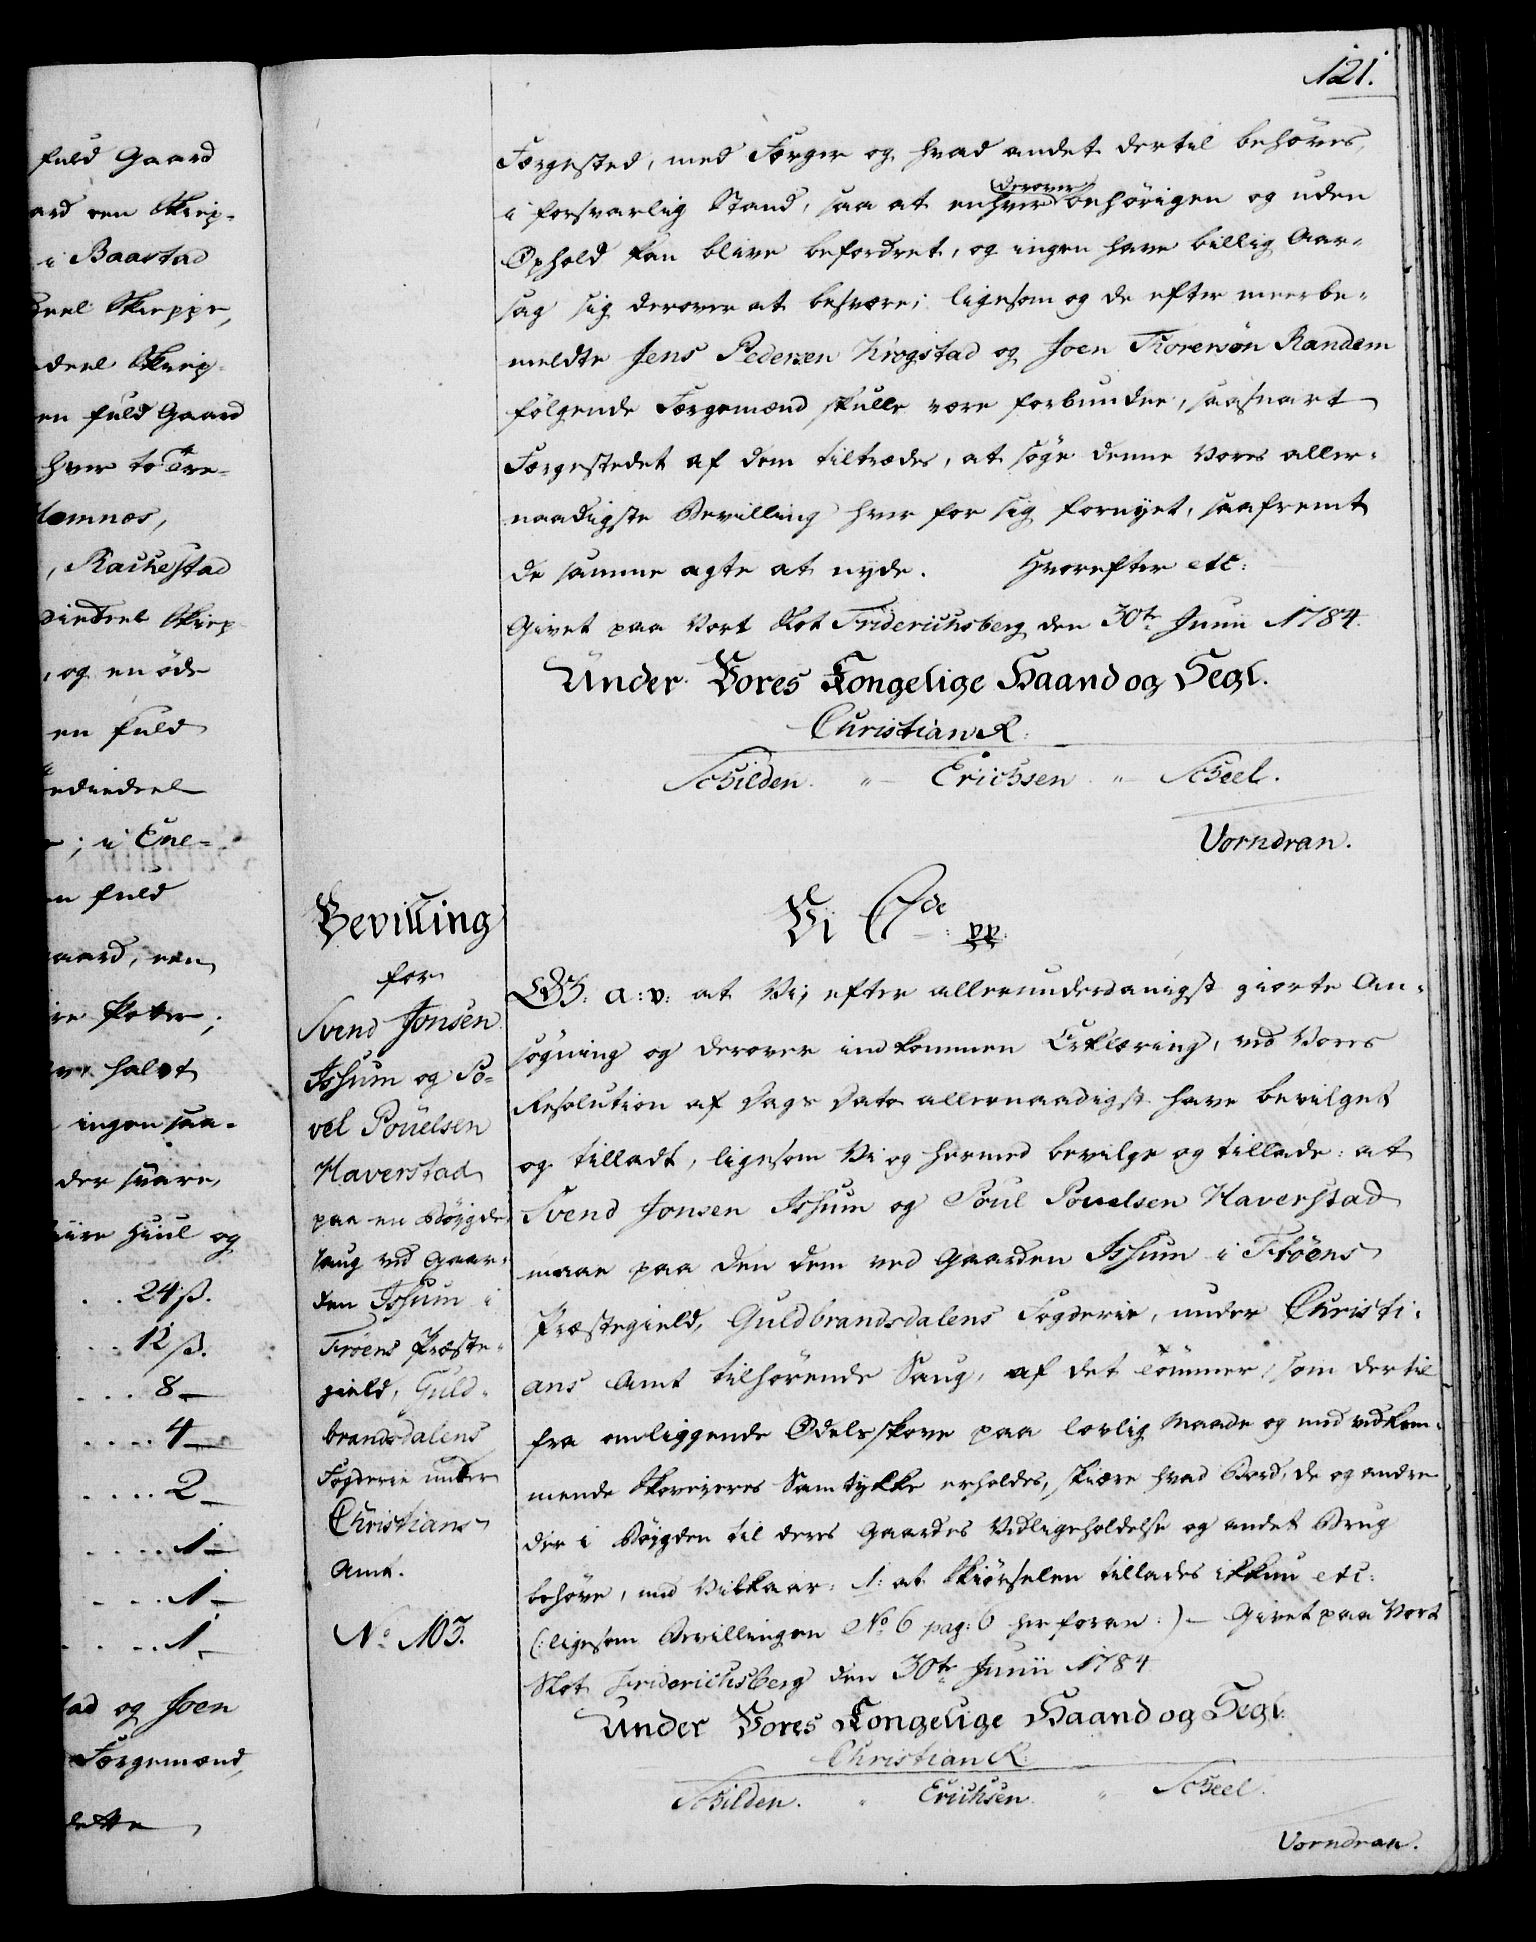 121.
fuld Gaard
ard een Skiep-
i Baastad
deel Skieppe,
deel Skiep-
en fuld Gaard
hver to Tre-
Hemnæs,
, Rachestad
diedeel Skiep-
, og en øde
en fuld
rediedeel
; i Ene-
en fuld
aard, een
re Poster;
halvt
ingen saa-
der svare,
Huul og
. . 24 ß.
. . 12 ß.
. . . 8 —
. . . . 4 —
. . . . 2 —
. . . . 1 —
. . . . 1 —
. . . . 1 —
tad og Joen
Færgemænd,
dette
Færgested, med Færger og hvad andet dertil behøves,
i forsvarlig Stand, saa at enhver derover behørigen og uden
Ophold kan blive befordret, og ingen have billig Aar-
sag sig derover at besvære; ligesom og de efter meerbe-
meldte Jens Pedersen Krogstad og Joen Torersøn Randem
følgende Færgemænd skulle være forbundne, saasnart
Færgestedet af dem tiltrædes, at søge denne Vores aller-
naadigste Bevilling hver for sig fornyet, saafremt
de samme agte at nyde. Hvorefter etc:
Givet paa Vort Slot Friderichsberg den 30te Junii 1784.
Under Vores Kongelige Haand og Segl.
Christian R:
Schilden. " Erichsen " Scheel.
Vorndran.
Bevilling
for
Svend Jonsen
Isum og Po-
vel Pouelsen
Haverstad
paa en Bøigde-
saug ved Gaar-
den Isum i
Frøens Præste-
gield, Guld-
brandsdalens
Fogderie under
Christians
Amt.
No. 103.
Vi C 7de pp.
G: a: v: at Vi, efter allerunderdanigst giorte An-
søgning og derover indkommen Erklæring, ved Vores
Resolution af Dags Dato allernaadigst have bevilget
og tilladt, ligesom Vi og hermed bevilge og tillade: at
Svend Jonsen Isum og Poul Pouelsen Haverstad
maae paa den dem ved Gaarden Isum i Frøens
Præstegield, Guldbrandsdalens Fogderie, under Christi-
ans Amt tilhørende Saug, af det Tømmer, som dertil
fra omliggende Odelsskove paa lovlig Maade og med vedkom-
mende Skoveieres Samtykke erholdes, skiære hvad Bord, de og andre
der i Bøigden til deres Gaardes Vedligeholdelse og andet Brug
behøve, med Vilkaar: 1: at Skiørselen tillades ikkun etc:
(: ligesom Bevillingen No 6 pag: 6 her foran :) — Givet paa Vort
Slot Friderichsberg den 30te Junii 1784
Under Vores Kongelige Haand og Segl.
Christian R:
Schilden. " Erichsen. " Scheel.
Vorndran.